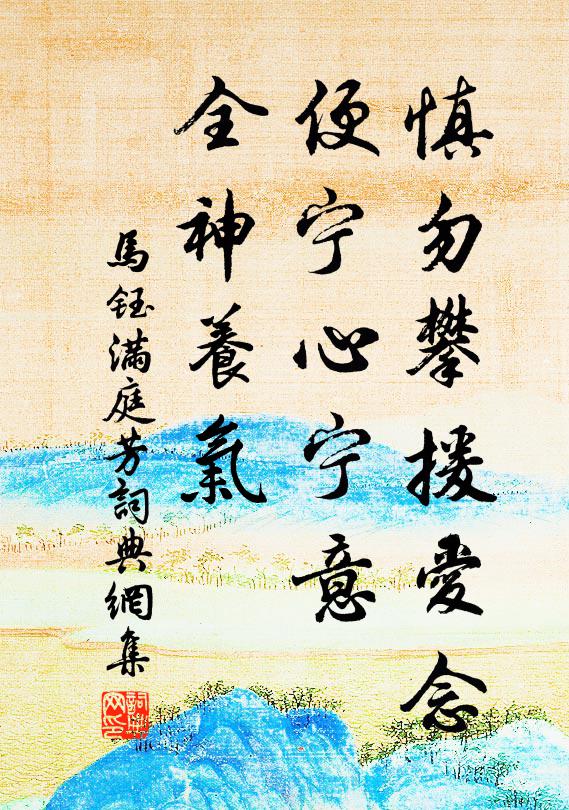 慎勿攀援愛念
便宁心宁意
全神養氣
馬鈺满庭芳詞典網集